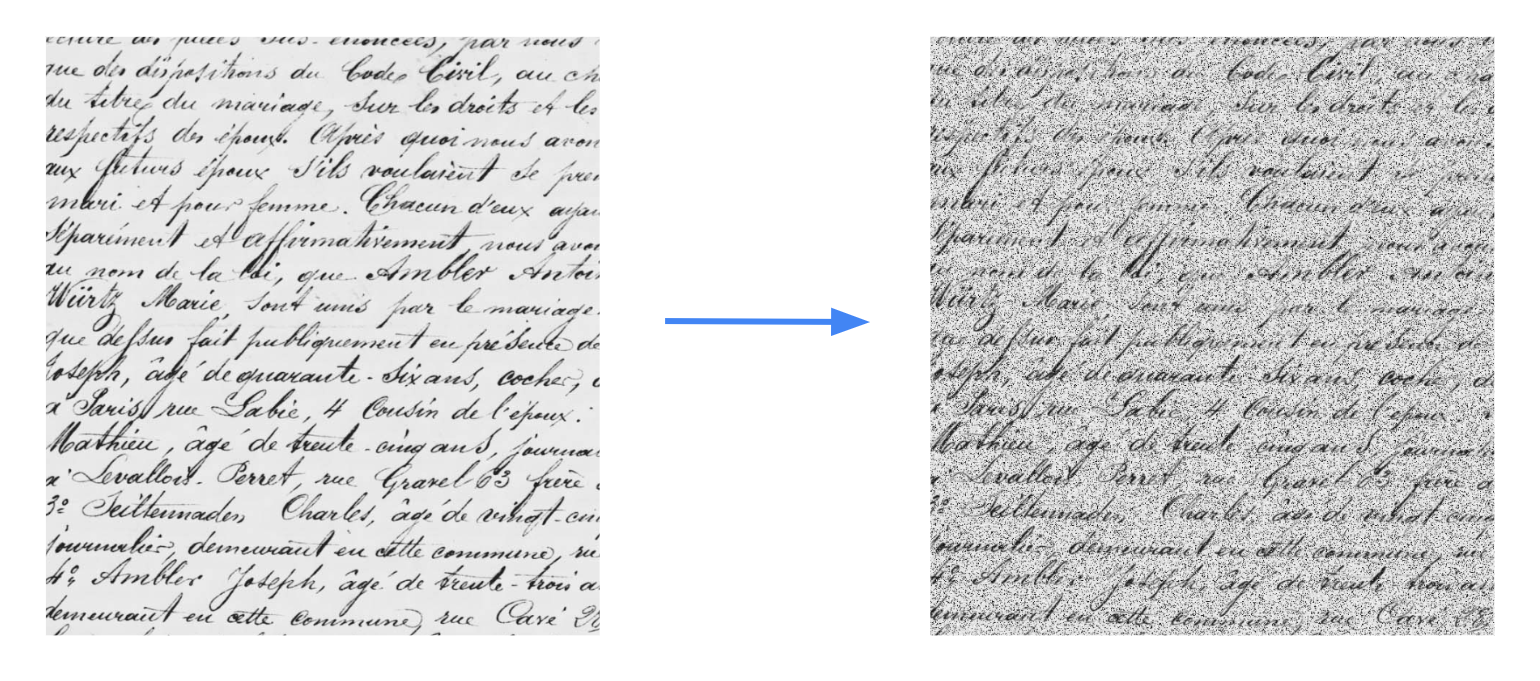 que des dispositions du Code Civil, au
du titre du mariage, sur les droits et les
respectifs des époux. Après quoi nous avon
aux futurs époux s'ils voulaient se pren
mari et pour femme. Chacun d'eux ayan
séparément et affirmativement, nous avon
au nom de la loi, que Ambler Antoin
Würtz Marie, sont unis par le mariage.
que dessus fait publiquement en présence de
Joseph, âgé de quarante-six ans, cocher,
à Paris, rue Labie, 4 Cousin de l'époux.
Mathieu, âgé de trente-cinq ans, journa
à Levallois-Perret, rue Gravel 63 frère
3° Charles, âgé de vingt-cin
journalier, demeurant en cette commune, ru
4° Ambler Joseph, âgé de trente-trois a
demeurant en cette commune, rue Cavé
que des dispositions du Code Civil, au
du titre du mariage, sur les droits et les
respectifs des époux. Après quoi nous avon
aux futurs époux s'ils voulaient se pren
mari et pour femme. Chacun d'eux ayan
séparément et affirmativement, nous avon
au nom de la loi, que Ambler Antoin
Würtz Marie, sont unis par le mariage.
que dessus fait publiquement en présence de
Joseph, âgé de quarante-six ans, cocher,
à Paris, rue Labie, 4 Cousin de l'époux
Mathieu, âgé de trente-cinq ans, journa
à Levallois-Perret, rue Gravel 63 frère
3° Charles, âgé de vingt-cin
journalier, demeurant en cette commune, ru
4° Ambler Joseph, âgé de trente-trois ans
demeurant en cette commune, rue Cavé